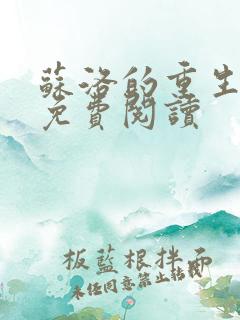 蘇洛的重生
免費閱讀
板藍根拌面
未经同意禁止转载